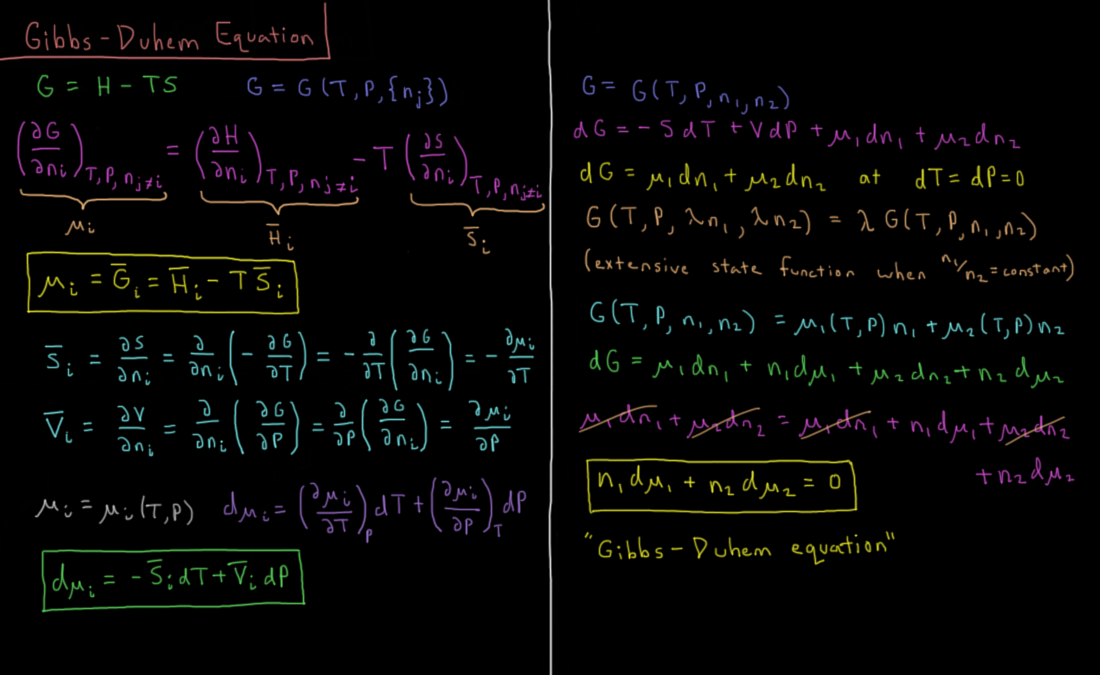 Gibbs-Duhem Equation
G = H - TS    G = G(T, P, {nⱼ})
(∂G/∂nᵢ)_T,P,nⱼ≠ᵢ = (∂H/∂nᵢ)_T,P,nⱼ≠ᵢ - T(∂S/∂nᵢ)_T,P,nⱼ≠ᵢ
μᵢ    H̅ᵢ    S̅ᵢ
μᵢ = G̅ᵢ = H̅ᵢ - TS̅ᵢ
S̅ᵢ = ∂S/∂nᵢ = ∂/∂nᵢ(-∂G/∂T) = -∂/∂T(∂G/∂nᵢ) = -∂μᵢ/∂T
V̅ᵢ = ∂V/∂nᵢ = ∂/∂nᵢ(∂G/∂P) = ∂/∂P(∂G/∂nᵢ) = ∂μᵢ/∂P
μᵢ = μᵢ(T, P)    dμᵢ = (∂μᵢ/∂T)_P dT + (∂μᵢ/∂P)_T dP
dμᵢ = -S̅ᵢdT + V̅ᵢdP
G = G(T, P, n₁, n₂)
dG = -SdT + VdP + μ₁dn₁ + μ₂dn₂
dG = μ₁dn₁ + μ₂dn₂ at dT = dP = 0
G(T, P, λn₁, λn₂) = λG(T, P, n₁, n₂)
(extensive state function when n₁/n₂ = constant)
G(T, P, n₁, n₂) = μ₁(T, P)n₁ + μ₂(T, P)n₂
dG = μ₁dn₁ + n₁dμ₁ + μ₂dn₂ + n₂dμ₂
μ₁dn₁ + μ₂dn₂ = μ₁dn₁ + n₁dμ₁ + μ₂dn₂
+ n₂dμ₂
n₁dμ₁ + n₂dμ₂ = 0
"Gibbs-Duhem equation"